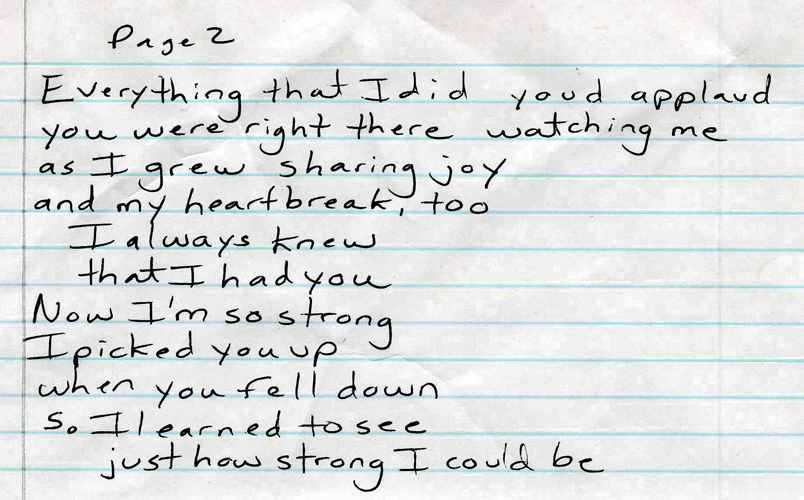 Page 2
Everything that I did youd applaud
you were right there watching me
as I grew sharing joy
and my heartbreak, too
I always knew
that I had you
Now I'm so strong
I picked you up
when you fell down
So I learned to see
just how strong I could be